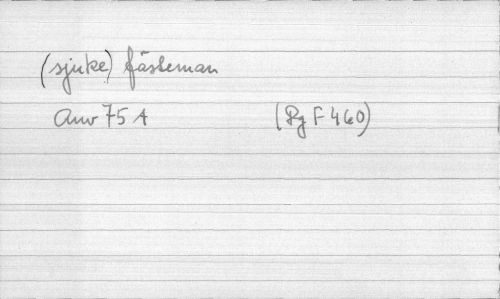 (sjuke) fästeman
Anv 75 A (Rg F 460)